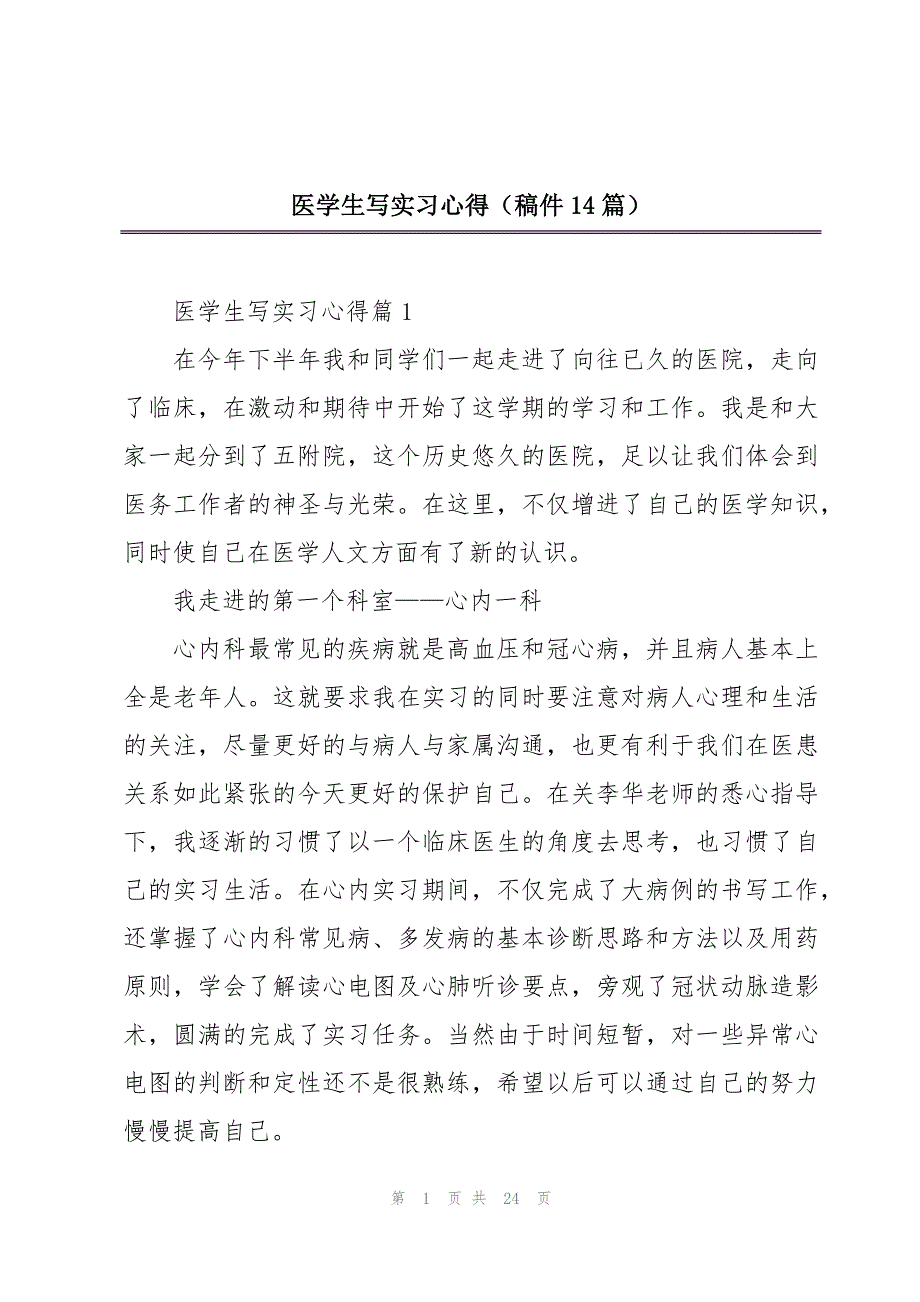 医学生写实习心得（稿件 14 篇）
医学生写实习心得篇 1
在今年下半年我和同学们一起走进了向往已久的医院，走向
了临床，在激动和期待中开始了这学期的学习和工作。我是和大
家一起分到了五附院，这个历史悠久的医院，足以让我们体会到
医务工作者的神圣与光荣。在这里，不仅增进了自己的医学知识，
同时使自己在医学人文方面有了新的认识。
我走进的第一个科室——心内一科
心内科最常见的疾病就是高血压和冠心病，并且病人基本上
全是老年人。这就要求我在实习的同时要注意对病人心理和生活
的关注，尽量更好的与病人与家属沟通，也更有利于我们在医患
关系如此紧张的今天更好的保护自己。在关李华老师的悉心指导
下，我逐渐的习惯了以一个临床医生的角度去思考，也习惯了自
己的实习生活。在心内实习期间，不仅完成了大病例的书写工作，
还掌握了心内科常见病、多发病的基本诊断思路和方法以及用药
原则，学会了解读心电图及心肺听诊要点，旁观了冠状动脉造影
术，圆满的完成了实习任务。当然由于时间短暂，对一些异常心
电图的判断和定性还不是很熟练，希望以后可以通过自己的努力
慢慢提高自己。
第 1 页 共 24 页